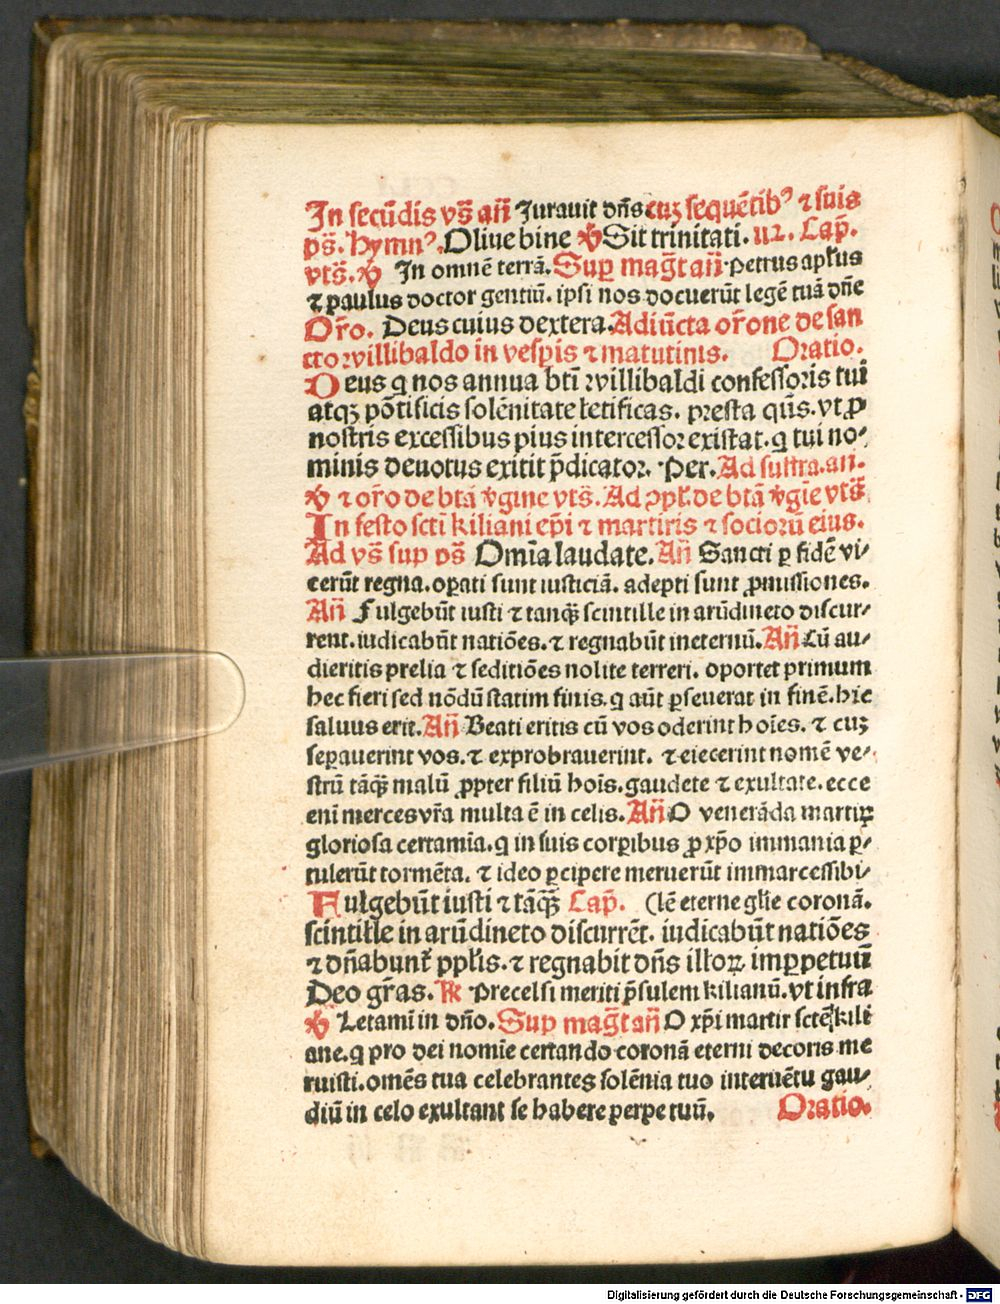 In secūdis vs̄ añ Jurauit dn̄s cuꝫ sequētibꝰ ⁊ suis
ps̄. Hymnꝰ. Oliue bine ℣ Sit trinitati. Cap̄.
vts̄. ℣ In omnē terrā. Suꝑ mag̃t añ Petrus apl̄us
⁊ paulus doctor gentiū. ipsi nos docuerūt legē tuā dn̄e
Or̄o. Deus cuius dextera. Adiūcta or̄one de san
cto willibaldo in vesꝑis ⁊ matutinis. Oratio.
Deus q nos annua bt̄i willibaldi confessoris tui
atqꝫ pōtificis solēnitate letificas. presta qūs. vt ꝓ
nostris excessibus pius intercessor existat. q tui no⸗
minis deuotus extitit p̄dicator. Per. Ad suffra. añ.
℣ ⁊ or̄o de btā v̄gine vts̄. Ad ꝯpl̄. de btā v̄gīe vts̄
In festo sct̄i kiliani ep̄i ⁊ martiris ⁊ sociorū eius.
Ad vs̄ suꝑ ps̄ Om̄ia laudate. Añ Sancti ꝑ fidē vi⸗
cerūt regna. oꝑati sunt iusticiā. adepti sunt ꝓmissiones.
Añ Fulgebūt iusti ⁊ tanqꝫ̄ scintille in arūdineto discur⸗
rent. iudicabūt natiōes. ⁊ regnabūt ineternū. Añ Cū au⸗
dieritis prelia ⁊ seditiōes nolite terreri. oportet primum
hec fieri sed nōdū statim finis. q aūt ꝑseuerat in finē. hic
saluus erit. Añ Beati eritis cū vos oderint hoīes. ⁊ cuꝫ
seꝑauerint vos. ⁊ exprobrauerint. ⁊ eiecerint nomē ve⸗
strū tāqꝫ̄ malū ꝓpter filiū hoīs. gaudete ⁊ exultate. ecce
enī merces vr̄a multa ē in celis. Añ O venerāda martirꝝ
gloriosa certamīa. q in suis corꝑibus ꝓ xp̄o immania ꝑ⸗
tulerūt tormēta. ⁊ ideo ꝑcipere meruerūt immarcessibi⸗
Fulgebūt iusti ⁊ tāqꝫ̄ Cap̄. (lē eterne glīe coronā.
scintille in arūdineto discurrēt. iudicabūt natiōes
⁊ dn̄abunt̄ ppl̄is. ⁊ regnabit dn̄s illorꝝ imꝑpetuū
Deo gr̄as. ℟ Precelsi meriti p̄sulem kilianū. vt infra
℣ Letamī in dn̄o. Suꝑ mag̃t añ O xp̄i martir sctē kili
ane. q pro dei nomīe certando coronā eterni decoris me
ruisti. omēs tua celebrantes solēnia tuo interuētu gau⸗
diū in celo exultant se habere perpetuū. Oratio.
Digitalisierung gefördert durch die Deutsche Forschungsgemeinschaft - DFG